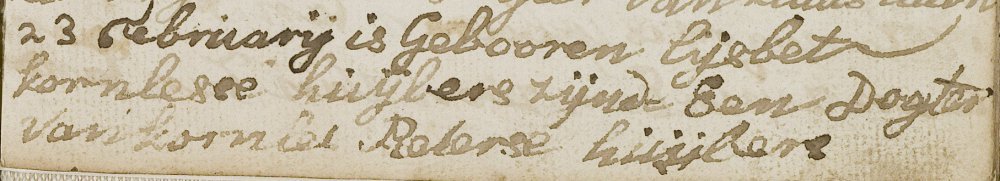 van klaas
23 February is Gebooren lijsbet
kornlesse huijbers zijnd Een Dogter
van kornles Peterse huijbers